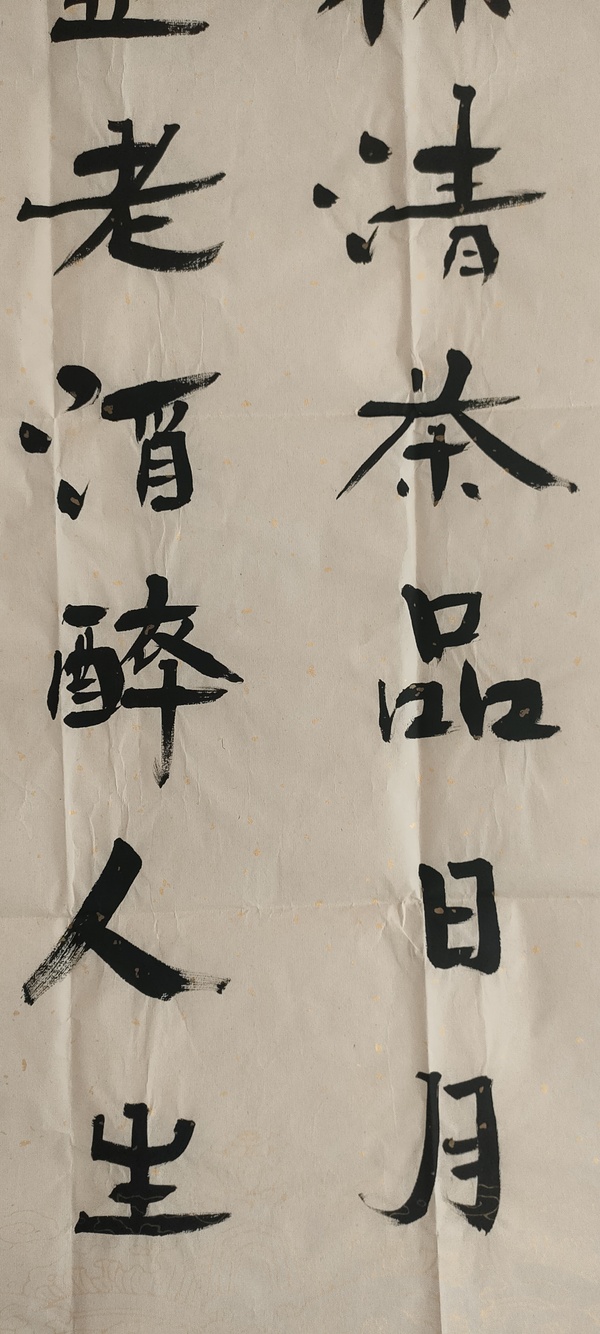 清茶品日月
老酒醉人生